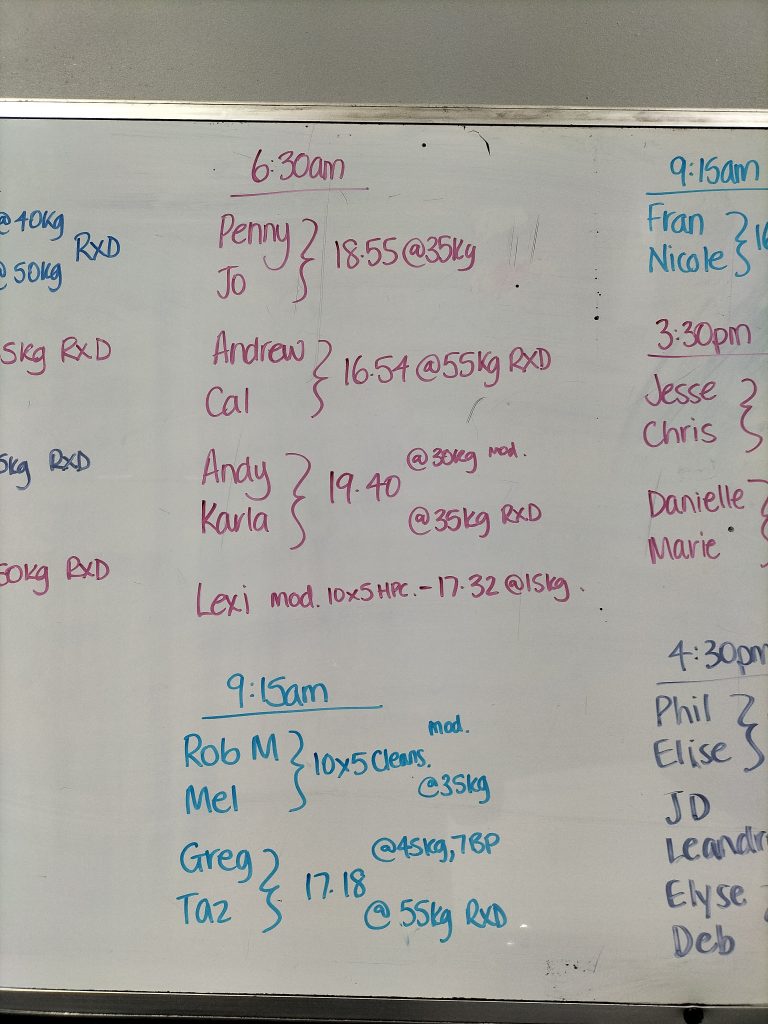 @40kg
RXD
@ 50kg
5kg RXD
5kg RXD
50kg RXD
6:30am
Penny
Jo
18.55 @35kg
Andrew
Cal
16.54 @55kg RXD
Andy
Karla
19.40
@30kg mod.
@35kg RXD
Lexi mod. 10x5 HPC. - 17.32 @15kg.
9:15am
Rob M
Mel
10x5 Cleans.
mod.
@35kg
Greg
Taz
17.18
@45kg, 7BP
@ 55kg RXD
9:15am
Fran
Nicole
16
3:30pm
Jesse
Chris
Danielle
Marie
4:30pm
Phil
Elise
JD
Leandr
Elyse
Deb